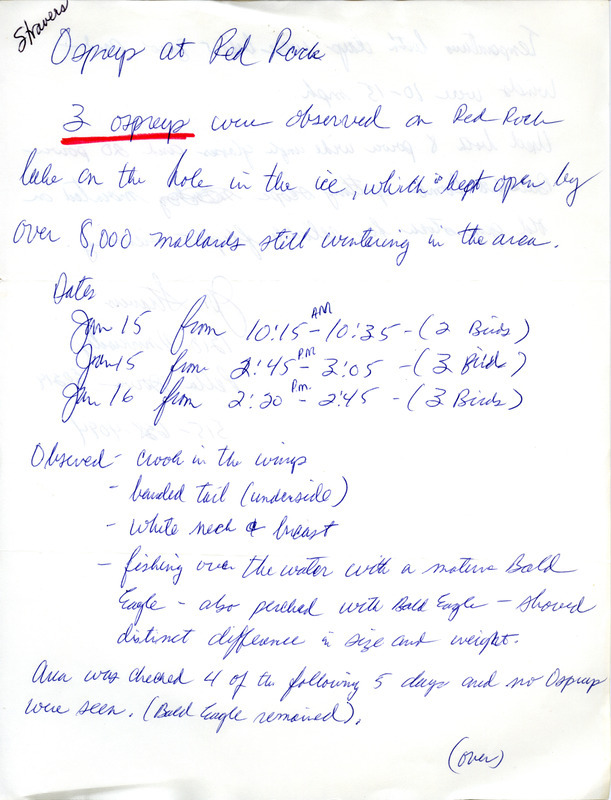 Stravers
Ospreys at Red Rock
3 ospreys were observed on Red Rock
lake on the hole in the ice, which is kept open by
over 8,000 mallards still wintering in the area.
Dates
Jan 15 from 10:15 AM - 10:35 - (2 Birds)
Jan 15 from 2:45 PM - 3:05 - (3 Birds)
Jan 16 from 2:20 P.M. - 2:45 - (3 Birds)
Observed - crook in the wings
- banded tail (underside)
- white neck & breast
- fishing over the water with a mature Bald
Eagle - also perched with Bald Eagle - showed
distinct difference in size and weight.
Area was checked 4 of the following 5 days and no Ospreys
were seen. (Bald Eagle remained).
(over)